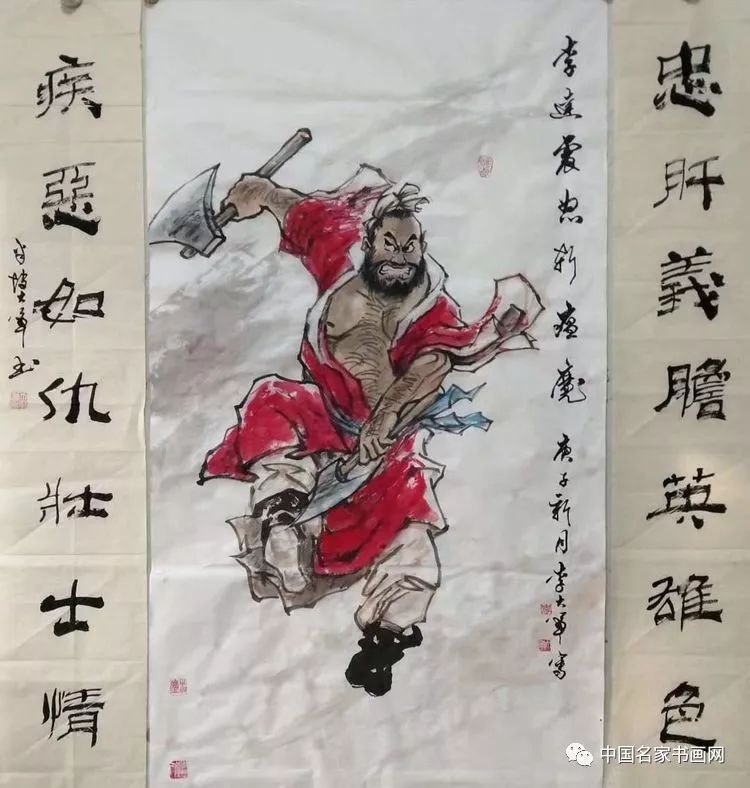 忠肝義膽英雄色
李逵震怒斬瘟魔
庚子新月李大軍写
疾惡如仇壮士情
中国名家书画网